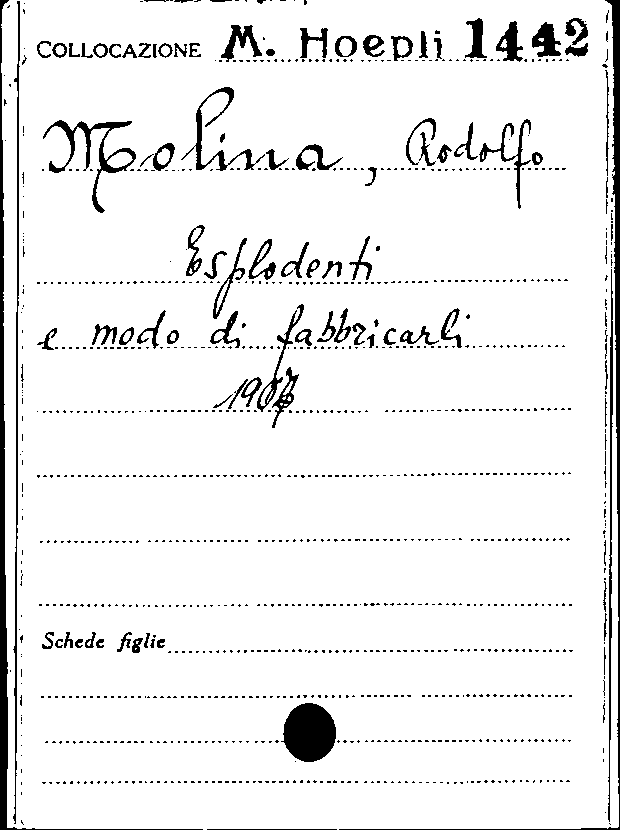 COLLOCAZIONE M. Hoepli 1442
Molina, Rodolfo
Esplodenti
e modo di fabbricarli
Schede figlie